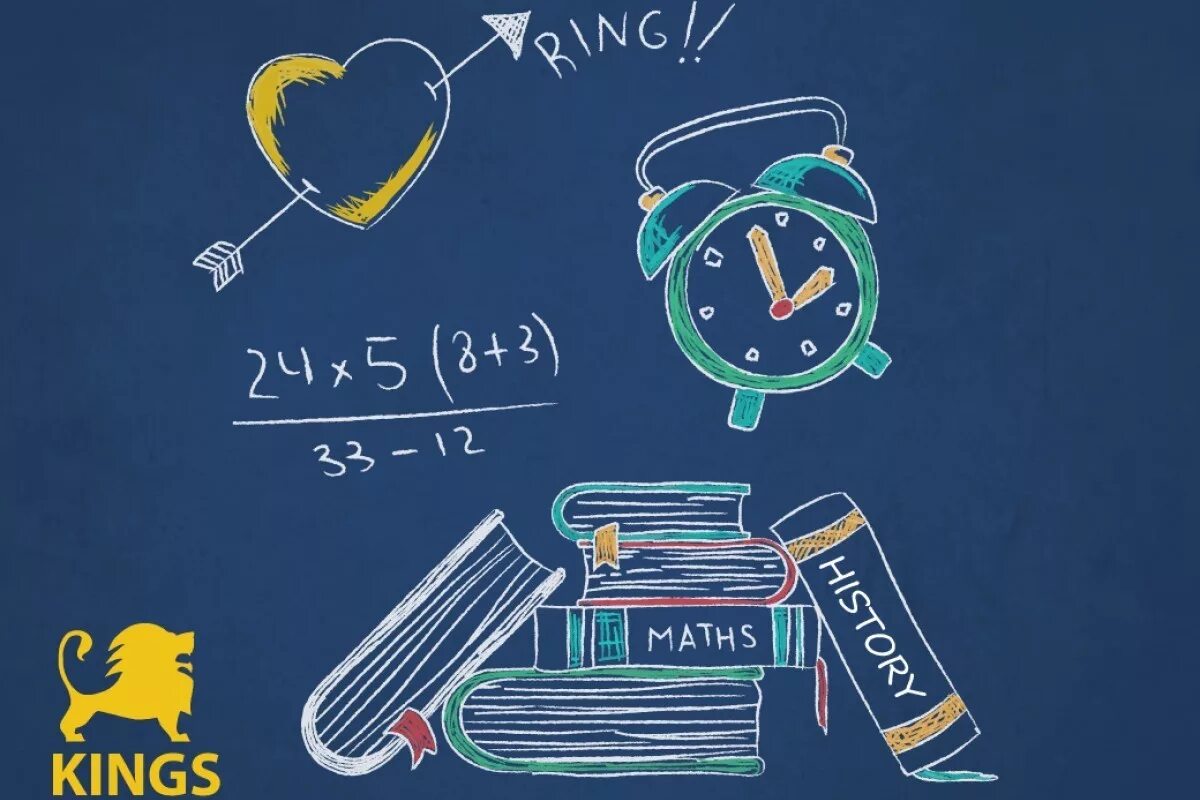 RING!!
24 x 5 (8+3)
33 - 12
MATHS
HISTORY
KINGS